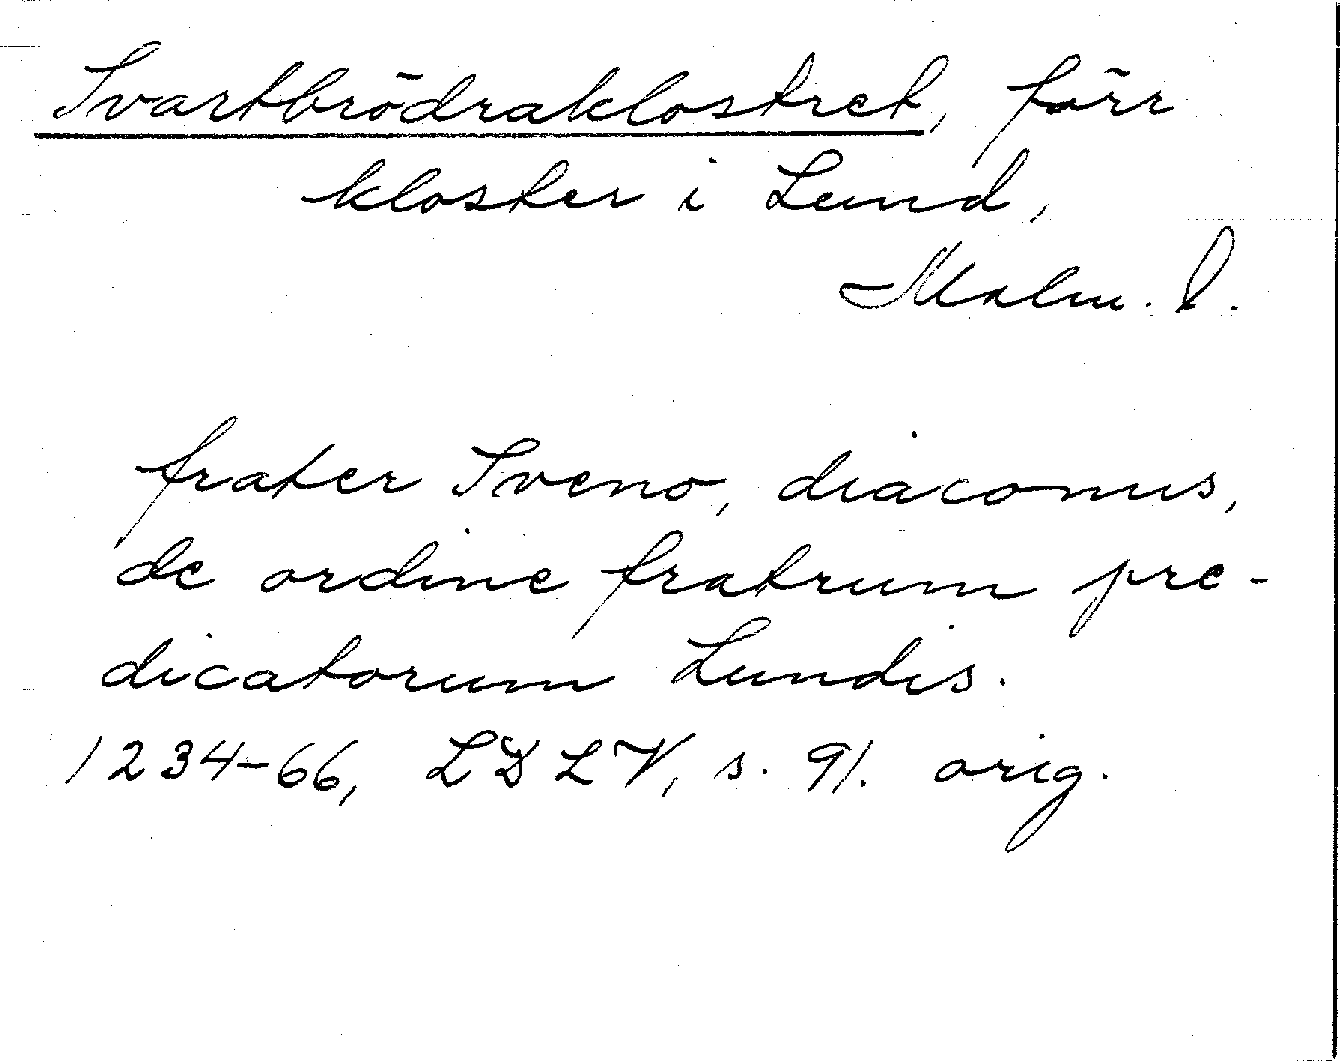 Svartbrödraklostret, förr
kloster i Lund,
Malm. l.
frater Sveno, diaconus,
de ordine fratrum pre-
dicatorum Lundis.
1234-66, LDLV, s. 91. orig.